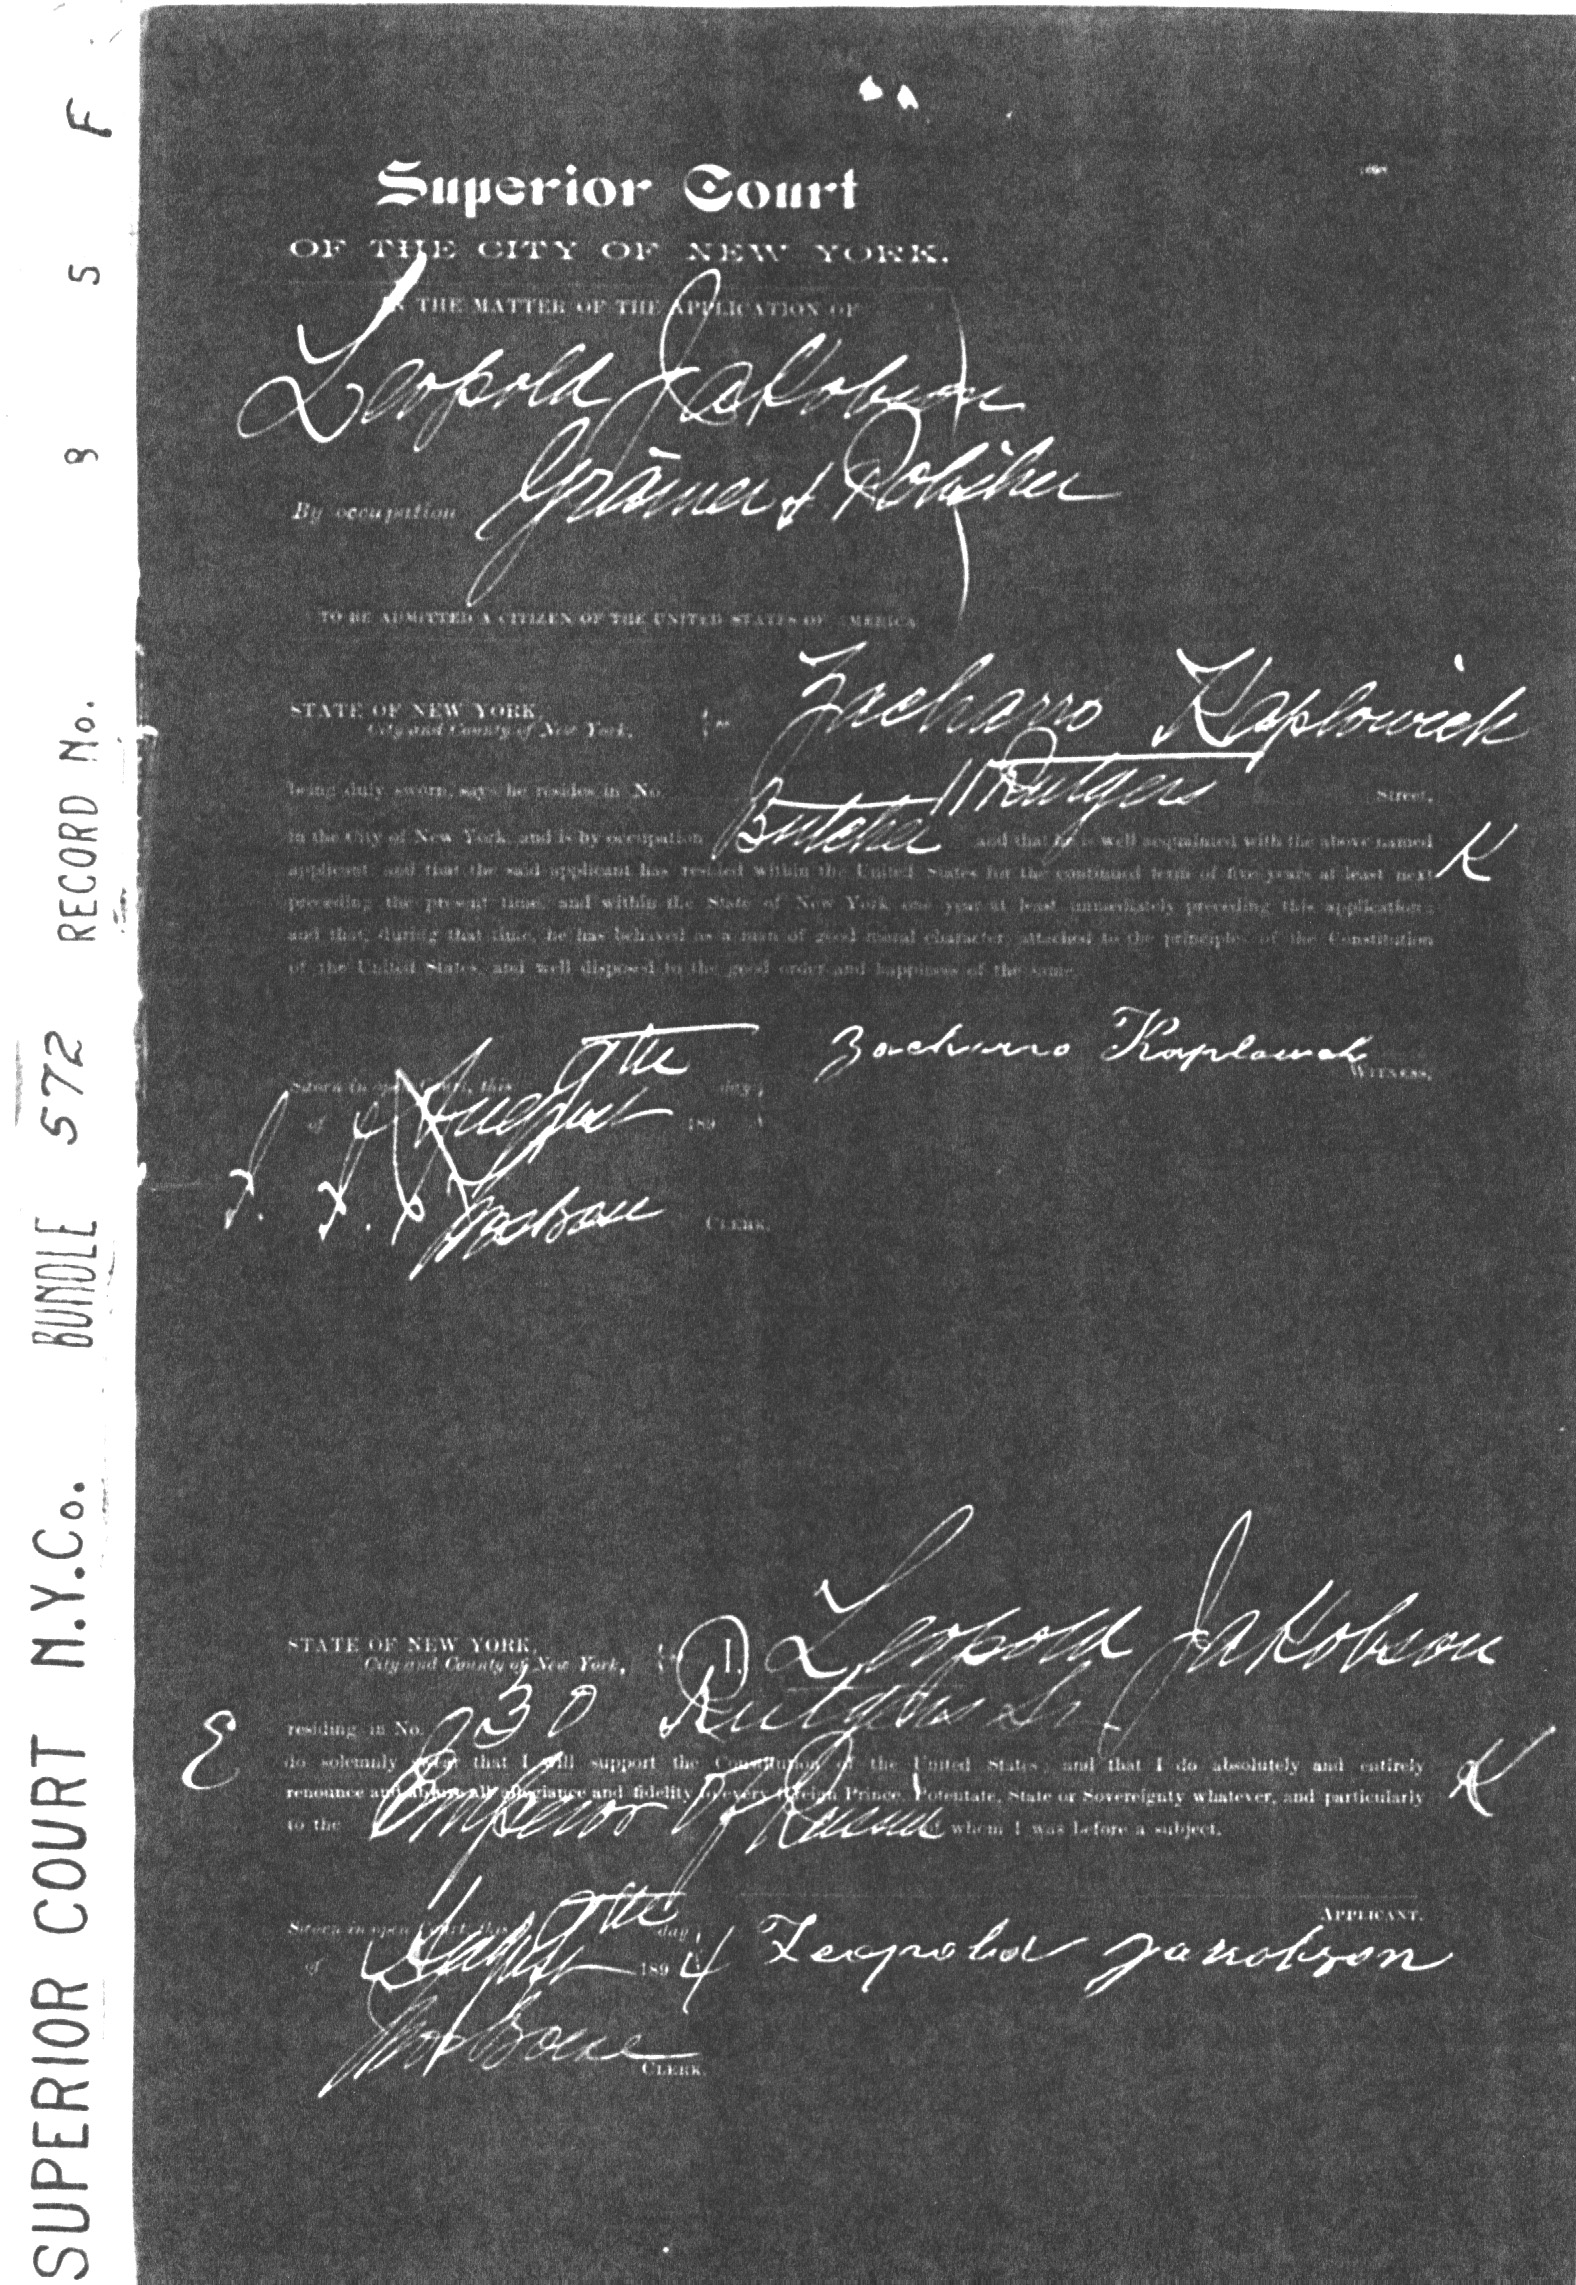 SUPERIOR COURT N.Y.Co. BUNDLE 572 RECORD No. B S F
Superior Court
OF THE CITY OF NEW YORK.
IN THE MATTER OF THE APPLICATION OF
Leopold Jakobson
By occupation &
TO BE ADMITTED A CITIZEN OF THE UNITED STATES OF AMERICA
STATE OF NEW YORK, ss Zacharro Kaplowich
City and County of New York,
being duly sworn, says he resides in No. 11 Rutgers Street,
in the City of New York, and is by occupation Butcher and that he is well acquainted with the above named K
applicant and that the said applicant has resided within the United States for the continued term of five years at least next
preceding the present time, and within the State of New York one year at least immediately preceding this application;
and that, during that time, he has behaved as a man of good moral character, attached to the principles of the Constitution
of the United States, and well disposed to the good order and happiness of the same
Sworn in open Court, this 9th day Zacharro Kaplowich
WITNESS.
of August 189
CLERK.
STATE OF NEW YORK, ss I, Leopold Jakobson
City and County of New York,
residing in No. 30 Rutgers St.
E
do solemnly swear that I will support the Constitution of the United States; and that I do absolutely and entirely K
renounce and abjure all allegiance and fidelity to every foreign Prince, Potentate, State or Sovereignty whatever, and particularly
to the Emperor of Russia of whom I was before a subject.
APPLICANT.
Sworn in open Court, this 9th day
of August 1894 Leopold Jakobson
CLERK.